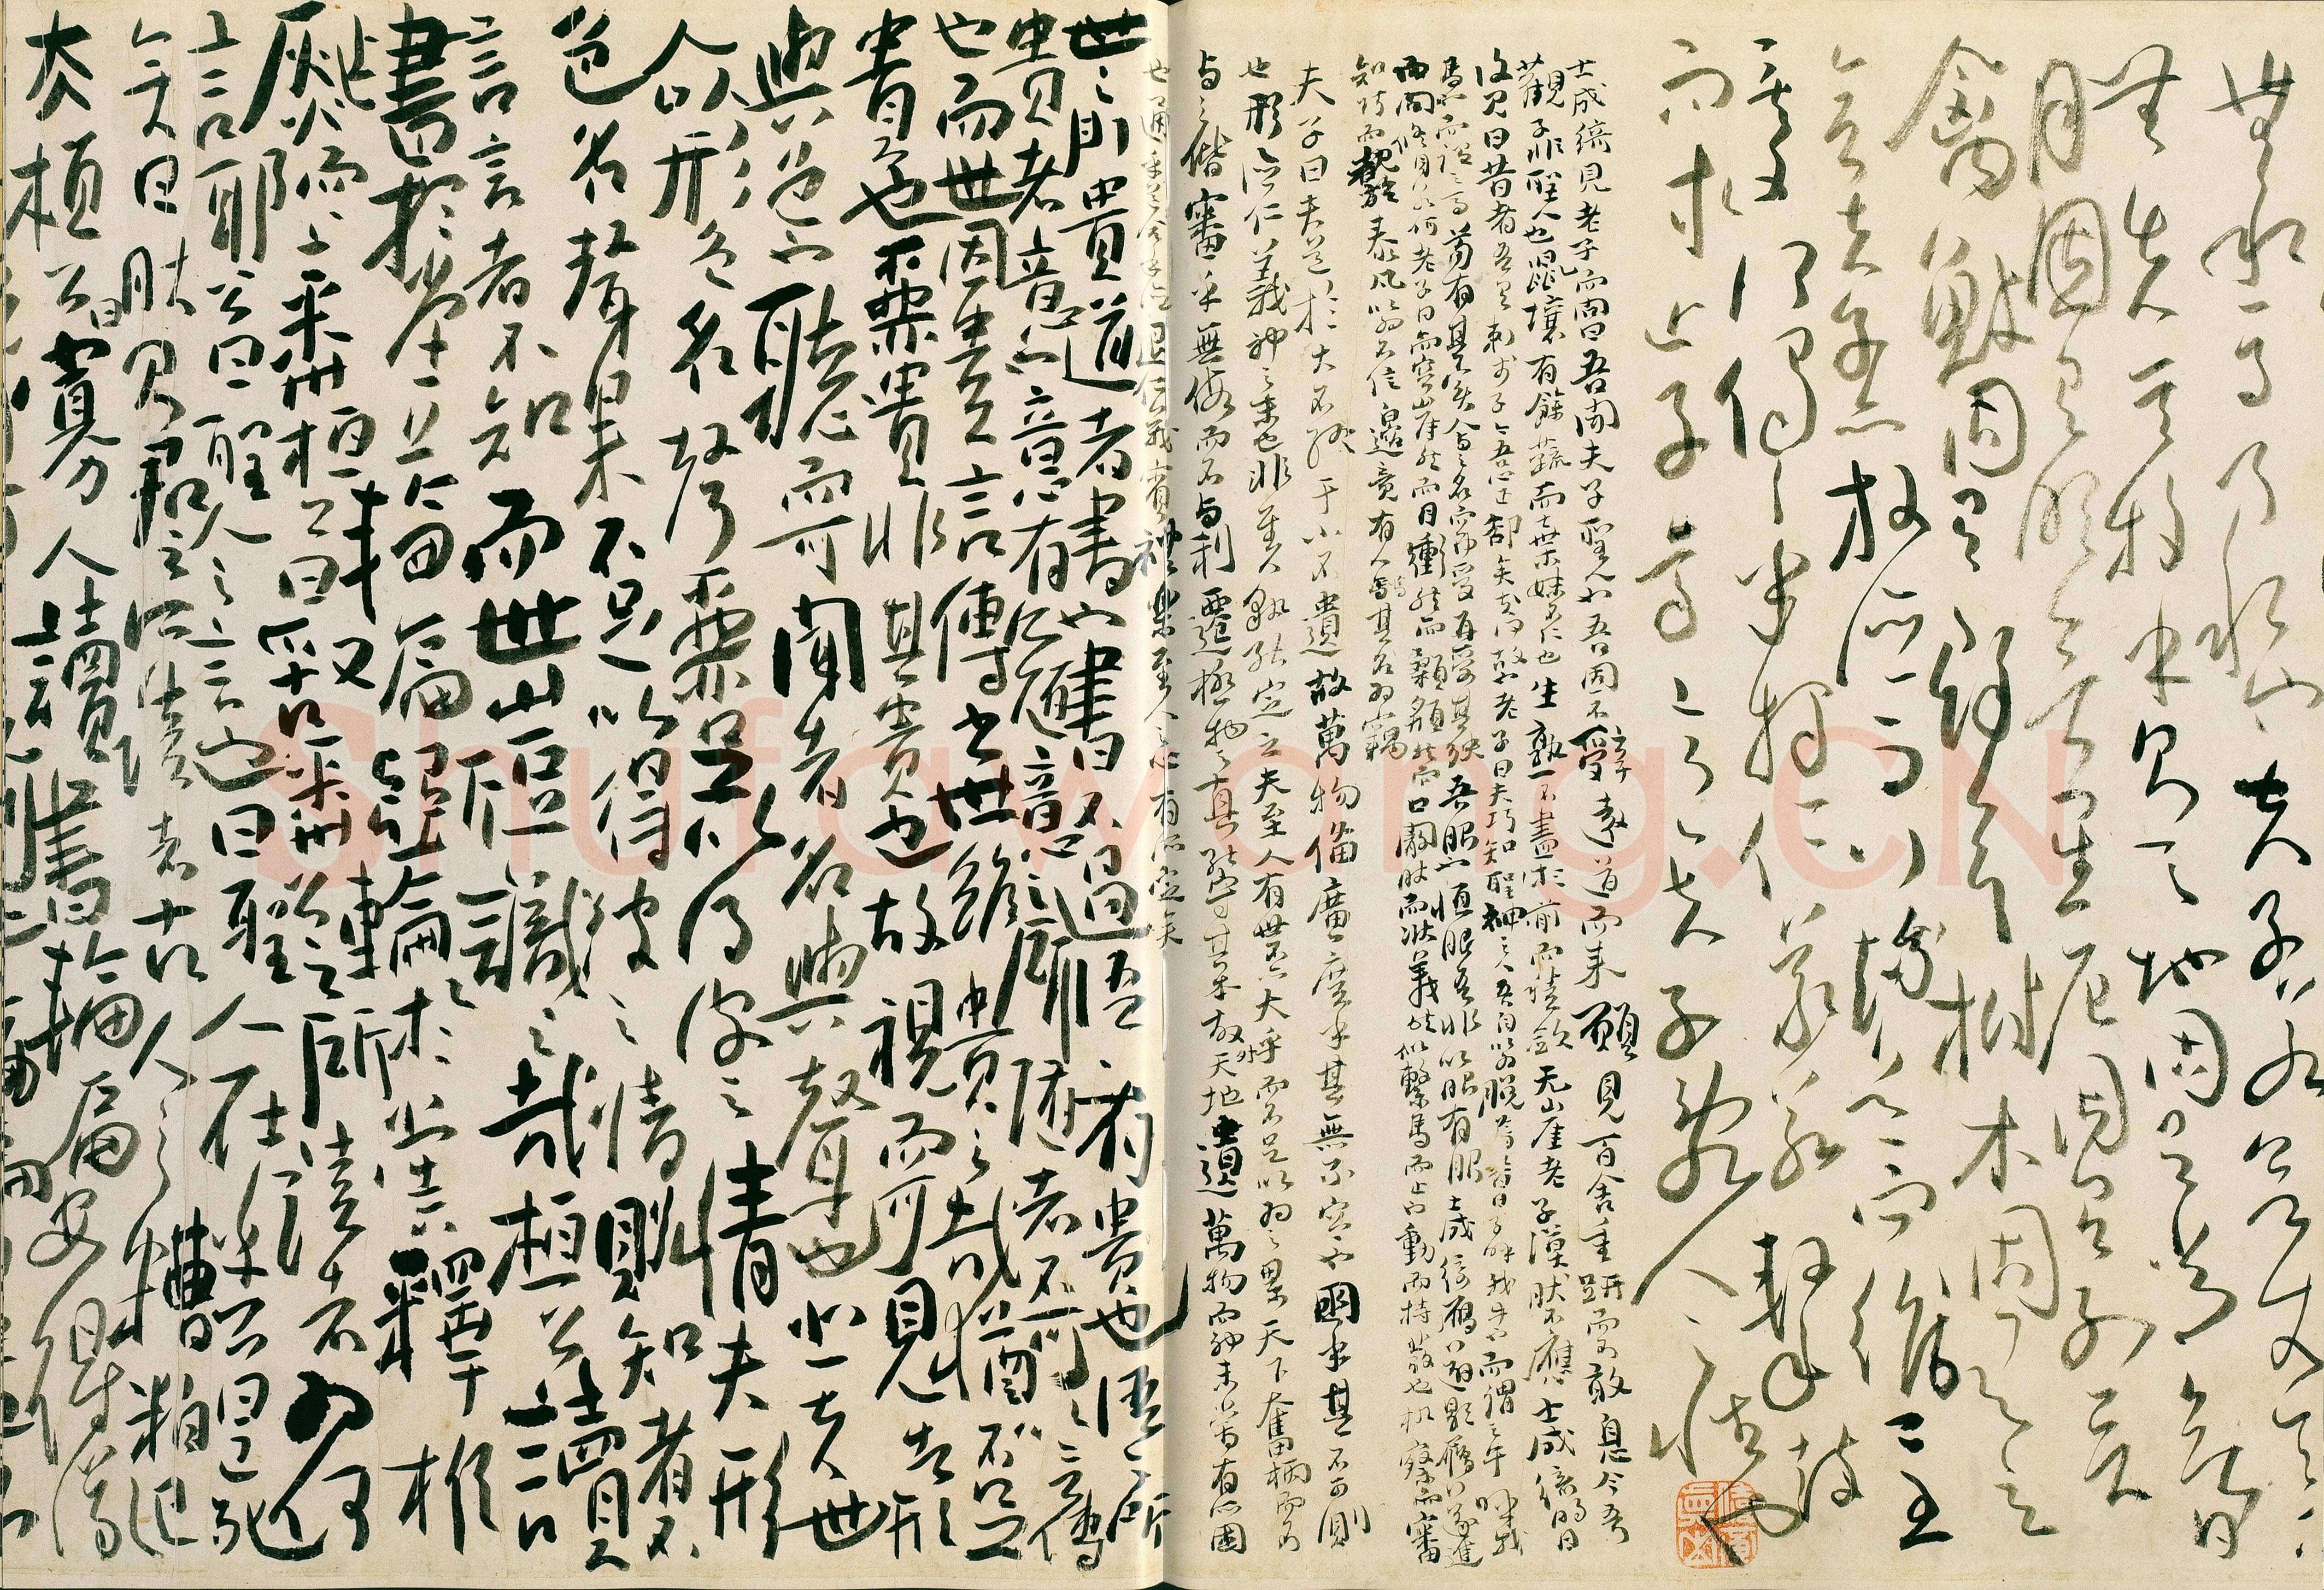 無私焉乃私也夫子若欲使天下
無失其牧乎則天地固有常矣日
月固有明矣星辰固有列矣
禽獸固有羣矣樹木固有立
矣夫子亦放德而行循道而趨已至
矣又何偈偈乎揭仁義若擊鼓
而求亡子焉意夫子亂人之性也
士成綺見老子而問曰吾聞夫子聖人也吾固不辭遠道而來願見百舍重趼而不敢息今吾
觀子非聖人也鼠壤有餘蔬而棄妹不仁也生熟不盡於前而積斂无崖老子漠然不應士成綺明日
復見曰昔者吾有刺於子今吾心正卻矣何故也老子曰夫巧知神聖之人吾自以為脫焉昔者子呼我牛也而謂之牛呼我
馬也而謂之馬苟有其實人與之名而弗受再受其殃吾服也恒服吾非以服有服士成綺鴈行避影履行遂進
而問修身若何老子曰而容崖然而目衝然而顙頯然而口闞然而狀義然似繫馬而止也動而持發也機察而審
知巧而覩於泰凡以為不信邊竟有人焉其名為竊
夫子曰夫道於大不終于小不遺故萬物備廣廣乎其無不容也淵乎其不可測
也形德仁義神之末也非至人孰能定之夫至人有世不亦大乎而不足以為之累天下奮柄而不
與之偕審乎無假而不與利遷極物之真能守其本故外天地遺萬物而神未嘗有所困
也通乎道合乎德退仁義賓禮樂至人之心有所定矣
世之所貴道者書也書不過語語有貴也語之所
貴者意也意有所隨意之所隨者不可以言傳
也而世因貴言傳書世雖貴之哉猶不足
貴也為其貴非其貴也故視而可見者形
與色也聽而可聞者名與聲也悲夫世
人以形色名聲為足以得彼之情夫形
色名聲果不足以得彼之情則知者不
言言者不知而世豈識之哉桓公讀
書於堂上輪扁斲輪於堂下釋椎
鑿而上問桓公曰敢問公之所讀者何
言耶公曰聖人之言也曰聖人在乎公曰已死
矣曰然則君之所讀者古人之糟粕已
夫桓公曰寡人讀書輪扁安得議
Shufawang.CN